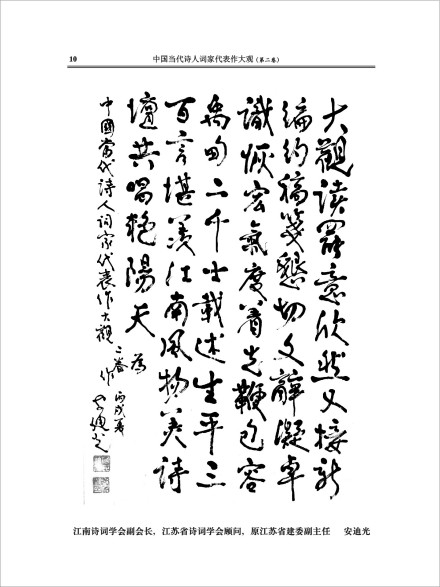 10
中国当代诗人词家代表作大观（第二卷）
大觀读罷意欣然又接新
编约稿箋懇切文辭凝卓
識恢宏氣度着先鞭包容
禹甸二千士載述生平三
百言堪羡江南風物美詩
壇共唱艳陽天 為
中國當代诗人词家代表作大觀二卷作
丙戌夏
安迪光
江南诗词学会副会长，江苏省诗词学会顾问，原江苏省建委副主任 安迪光